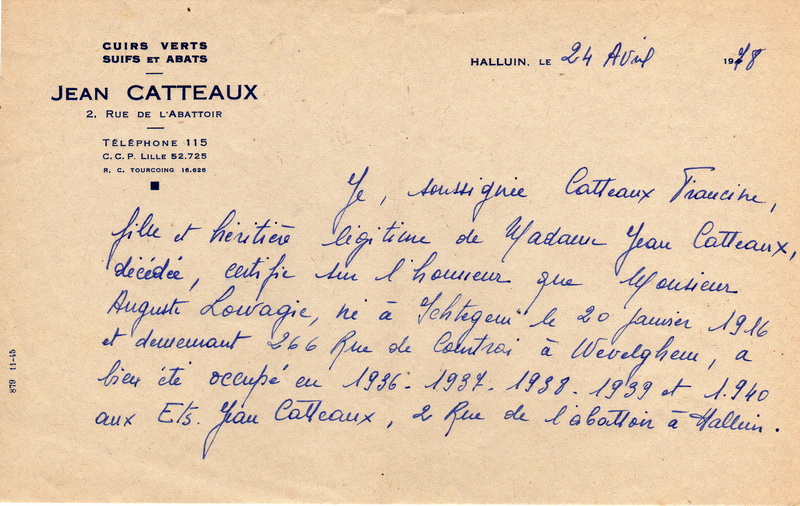 CUIRS VERTS
SUIFS ET ABATS
JEAN CATTEAUX
2, RUE DE L'ABATTOIR
TÉLÉPHONE 115
C. C. P. LILLE 52.725
R. C. TOURCOING 16.628
HALLUIN, LE 24 Avril 1978
Je, soussignée Catteaux Francine,
fille et héritière légitime de Madame Jean Catteaux,
décédée, certifie sur l'honneur que Monsieur
Auguste Lowagie, né à "Ichtegem" le 20 janvier 1916
et demeurant 266 Rue de Courtrai à Wevelghem, a
bien été occupé en 1936 - 1937 - 1938 - 1939 et 1.940
aux Ets. Jean Catteaux, 2 Rue de l'abattoir à Halluin.
879 11-45